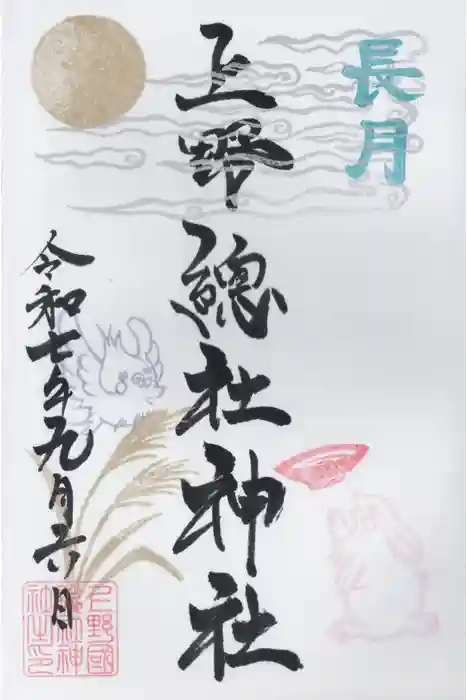 長月
上野總社神社
令和七年九月六日
上野國
総社神
社之印